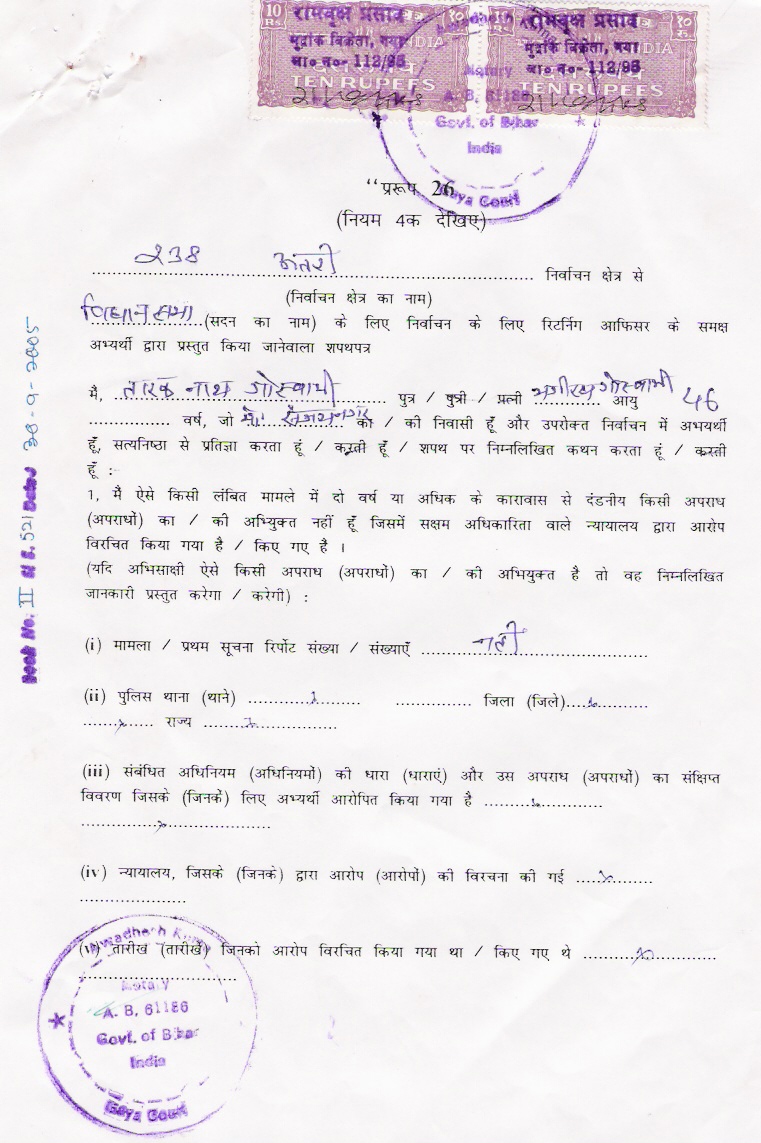 10 Rs. १० रु.
रामवृक्ष प्रसाद
मुद्रांक विक्रेता, गया
ला० न०- 112/98
INDIA
TEN RUPEES
रामवृक्ष प्रसाद
मुद्रांक विक्रेता, गया
ला० न०- 112/98
INDIA
TEN RUPEES
Notary
A. B. 61186
Govt. of Bihar
India
Gaya Court
“प्ररूप 26
(नियम 4क देखिए)
238 अतरी निर्वाचन क्षेत्र से
(निर्वाचन क्षेत्र का नाम)
विधानसभा (सदन का नाम) के लिए निर्वाचन के लिए रिटर्निग आफिसर के समक्ष
अभ्यर्थी द्वारा प्रस्तुत किया जानेवाला शपथपत्र
मै, तारक नाथ गोस्वामी पुत्र / पुत्री / प्रत्नी भगीरथ गोस्वामी आयु 46
वर्ष, जो मो० संजयनगर का / की निवासी हूँ और उपरोक्त निर्वाचन में अभयर्थी
हूँ, सत्यनिष्ठा से प्रतिज्ञा करता हूं / करती हूँ / शपथ पर निम्नलिखित कथन करता हूं / करती
हूँ :
1, मैं ऐसे किसी लंबित मामले में दो वर्ष या अधिक के कारावास से दंडनीय किसी अपराध
(अपराधों) का / की अभ्यिुक्त नहीं हूँ जिसमें सक्षम अधिकारिता वाले न्यायालय द्वारा आरोप
विरचित किया गया है / किए गए है ।
(यदि अभिसाक्षी ऐसे किसी अपराध (अपराधों) का / की अभियुक्त है तो वह निम्नलिखित
जानकारी प्रस्तुत करेगा / करेगी) :
(i) मामला / प्रथम सूचना रिर्पोट संख्या / संख्याएँ नहीं
(ii) पुलिस थाना (थाने) x जिला (जिले) x
x राज्य x
(iii) संबंधित अधिनियम (अधिनियमों) की धारा (धाराएं) और उस अपराध (अपराधों) का संक्षिप्त
विवरण जिसके (जिनकें) लिए अभ्यर्थी आरोपित किया गया है x
x
(iv) न्यायालय, जिसके (जिनके) द्वारा आरोप (आरोपों) की विरचना की गई x
(v) तारीख (तारीखें) जिनको आरोप विरचित किया गया था / किए गए थे x
Awadhesh Kumar
Notary
A. B. 61186
Govt. of Bihar
India
Gaya Court
Book No. II Sl. No. 521 Dated 28-9-2005